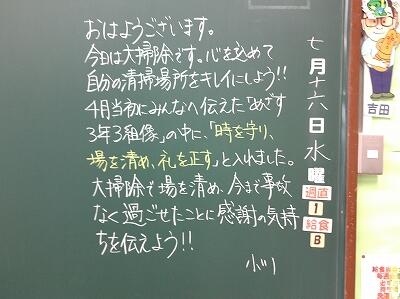 おはようございます。
今日は大掃除です。心を込めて
自分の清掃場所をキレイにしよう!!
4月当初にみんなへ伝えた「めざす
3年3組像」の中に、「時を守り、
場を清め、礼を正す」と入れました。
大掃除で場を清め、今まで事故
なく過ごせたことに感謝の気持
ちを伝えよう!!
小川
七月十六日水曜
週直
1
給食
B
吉田